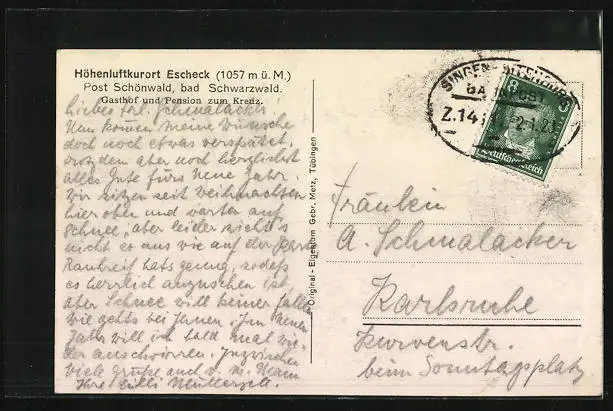 Höhenluftkurort Escheck (1057 m ü. M.)
Post Schönwald, bad Schwarzwald.
Gasthof und Pension zum Kreuz.
Liebes Frl. Schmalacker
Nun kommen meine Wünsche
doch noch etwas verspätet,
trotzdem aber noch herzlichst
alles Gute fürs neue Jahr.
Wir sitzen seit Weihnachten
hier oben und warten auf
Schnee, aber leider sieht's
nicht so aus wie auf der Karte
Rauhreif hats genug, sodass
es herrlich anzusehen ist,
aber Schnee will keiner fallen
Wie gehts bei Ihnen. Im neuen
Jahr will ich bald mal wie-
der anschwirren. Inzwischen
viele Grüße auch v. m. Mann
Ihre
Original - Eigentum Gebr. Metz, Tübingen
SINGEN
BAHNPOST
Z.14
2.1.2
8
Deutsches Reich
Fräulein
A. Schmalacker
Karlsruhe
Kurvenstr.
beim Sonntagsplatz